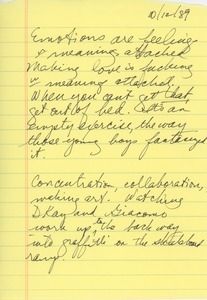 10/12/89
Emotions are feelings
& meaning attached
Making love is fucking
& meaning attached,
When you can't get that
get out of bed. It's an
empty exercise, the way
those young boys fantasized
it.
Concentration, collaboration,
making art. Watching
DRay and Giacomo
work up, to the back way
into graffitti on the skateboard
ramp